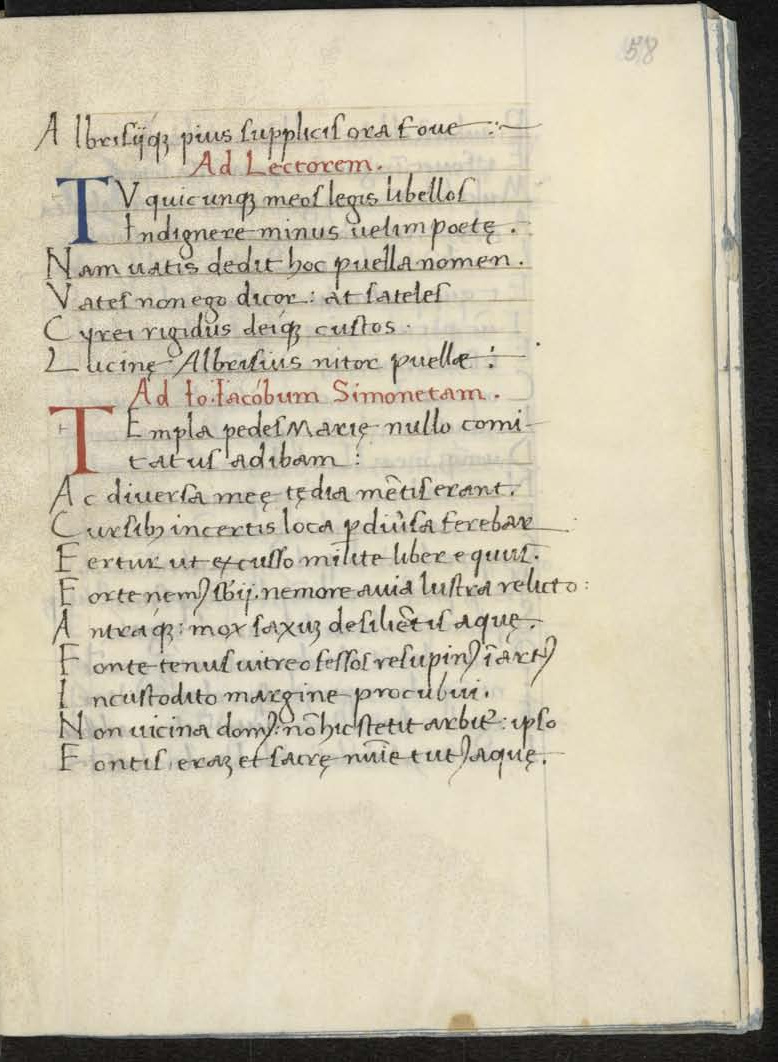 58
Albrisijq; pius supplicis ora foue :~
Ad Lectorem.
TV quicunq; meos legis libellos
Indignere minus uelim poetę .
Nam uatis dedit hoc puella nomen .
Vates non ego dicor : at sateles
Cyrei rigidus deiq; custos .
Lucinę Albrisius nitor puellæ :
Ad Io. Iacóbum Simonetam .
TEmpla pedes Marię nullo comi-
tatus adibam :
Ac diuersa meę tędia mẽtis erant .
Cursib; incertis loca ꝑ diũsa ferebar
Fertur ut excusso milite liber equus .
Forte nemꝰ sbij . nemore auia lustra relicto :
Antraq; : mox saxuꝫ desiliẽtis aquę .
Fonte tenus uitreo fessos resupinꝰ ĩ artꝰ
Incustodito margine procubui .
Non uicina domꝰ : nõ hic stetit arbit̃ : ipso
Fontis , eraꝫ et sacrę nũĩe tutꝰ aquę .